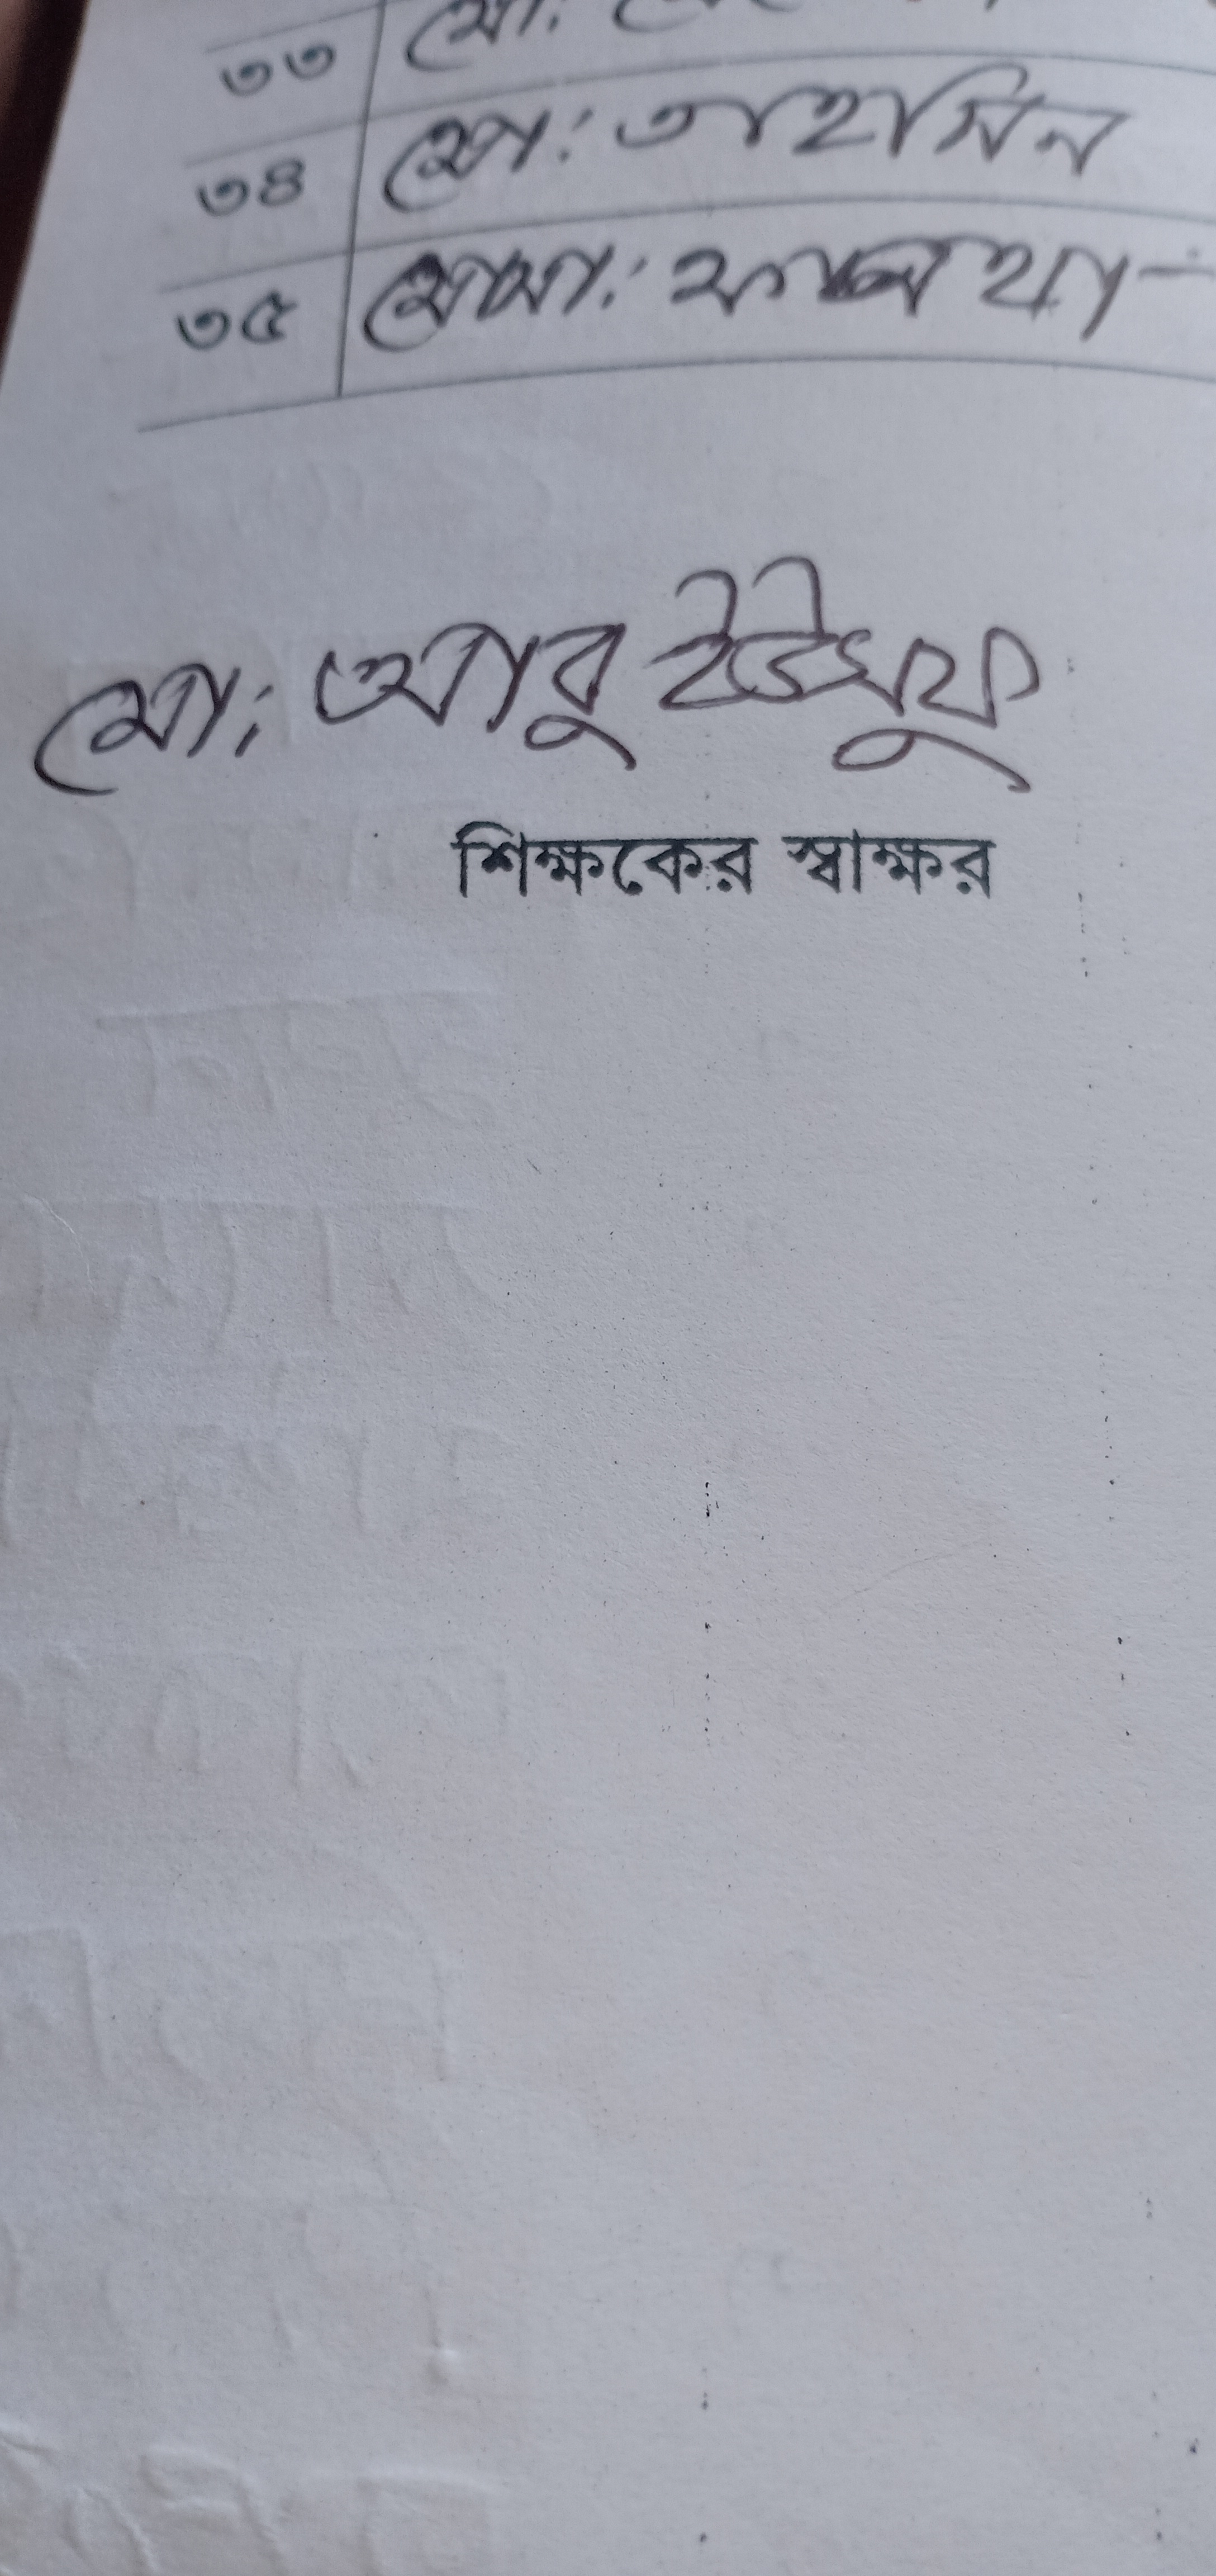 ৩৩ মো:
৩৪ মো: তাহসিন
৩৫ মোসা:
মো: আবু ইউসুফ
শিক্ষকের স্বাক্ষর